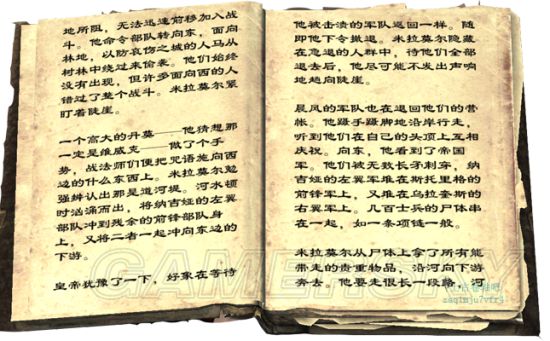 地所阻，无法迅速前移加入战
斗。他命令部队转向东，面向
林地，以防哀伤之城的人马从
树林中绕过来偷袭。他们始终
没有出现，但许多面向西的人
错过了整个战斗。米拉莫尔紧
盯着陡崖。
一个高大的丹莫——他猜想那
一定是维威克——做了个手
势，战法师们便把咒语施向西
边的什么东西上。米拉莫尔勉
强辨认出那是道河堤。河水顿
时汹涌而出，将纳吉娅的左翼
部队冲到残余的前锋部队身
上，又将二者一起冲向东边的
下游。
皇帝犹豫了一下，好象在等待
他被击溃的军队返回一样。随
即他下令撤退。米拉莫尔隐藏
在急退的人群中，待他们全部
退去后，他尽可能不发出声响
地趟向陡崖。
晨风的军队也在退回他们的营
帐。他蹑手蹑脚地沿岸行走，
听到他们在自己的头顶上互相
庆祝。向东，他看到了帝国
军。他们被无数长矛刺穿，纳
吉娅的左翼堆在斯托里格的
前锋军上，又堆在乌拉奎斯的
右翼军上。几百士兵的尸体串
在一起，如一条项链一般。
米拉莫尔从尸体上拿了所有能
带走的贵重物品，沿河向下游
奔去。他要走很长一段路，河
GAMERSKY